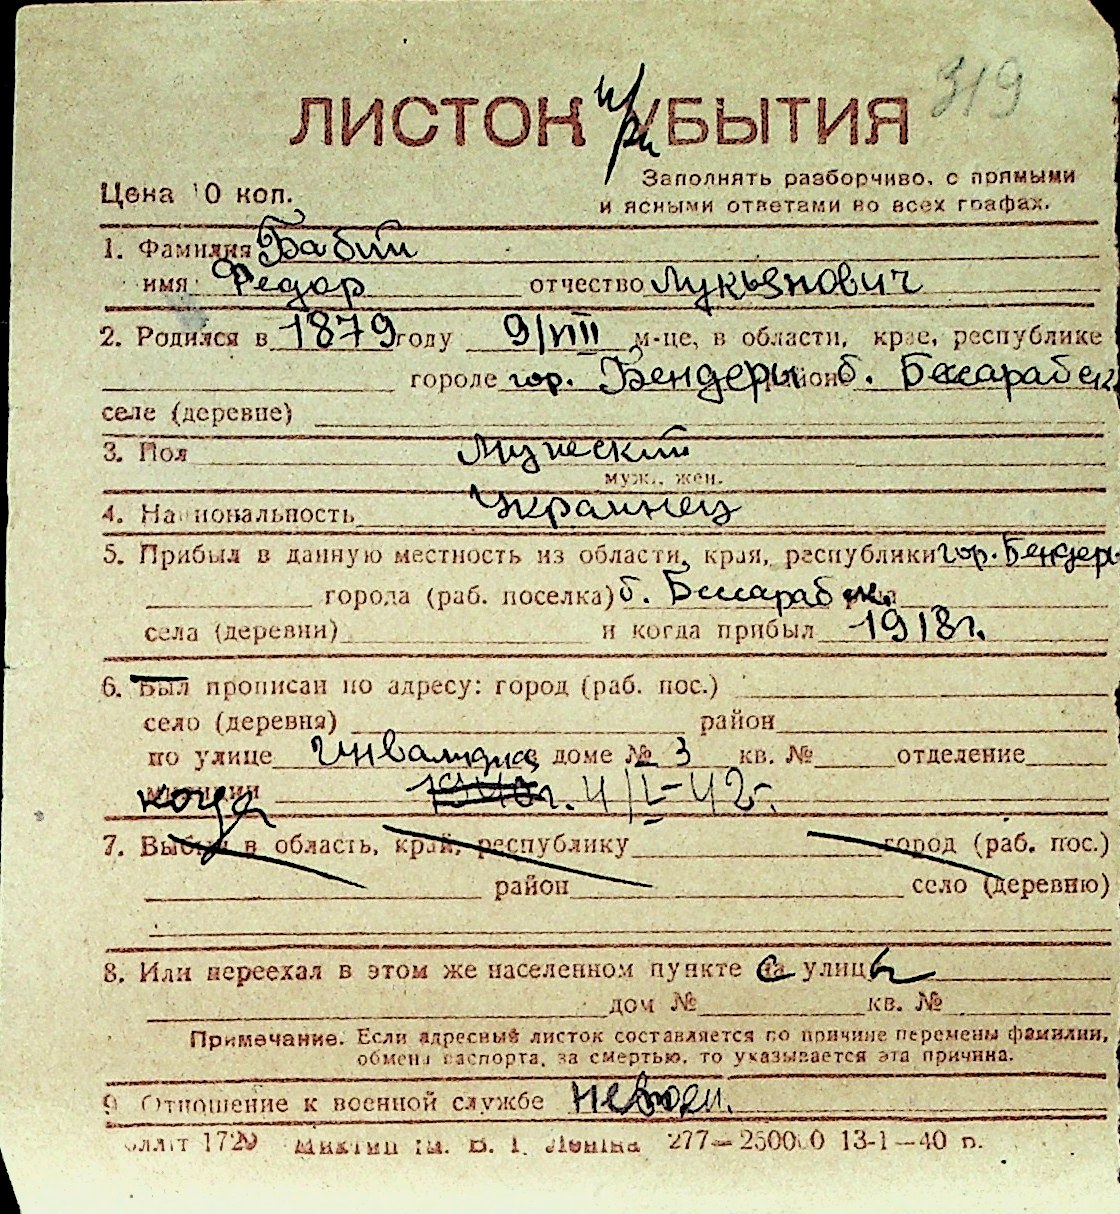 319
ЛИСТОК при УБЫТИЯ
Цена 10 коп.
Заполнять разборчиво, с прямыми
и ясными ответами во всех графах.
1. Фамилия Бабий
имя Федор отчество Лукьянович
2. Родился в 1879 году 9/VIII м-це, в области, крае, республике
городе гор. Бендеры район б. Бессарабск
селе (деревне)
3. Пол Мужской
муж., жен.
4. Национальность Украинец
5. Прибыл в данную местность из области, края, республики гор. Бендеры
города (раб. поселка) б. Бессарабск.
села (деревни) и когда прибыл 1918 г.
6. Был прописан по адресу: город (раб. пос.)
село (деревня) район
по улице Инвалидная доме № 3 кв. № отделение
милиции когда 1940 г. 4/I-42.
7. Выбыл в область, край, республику город (раб. пос.)
район село (деревню)
8. Или переехал в этом же населенном пункте с улицы
дом № кв. №
Примечание. Если адресный листок составляется по причине перемены фамилии,
обмена паспорта, за смертью, то указывается эта причина.
9 Отношение к военной службе невоен.
1729 277—250000 13-1—40 р.